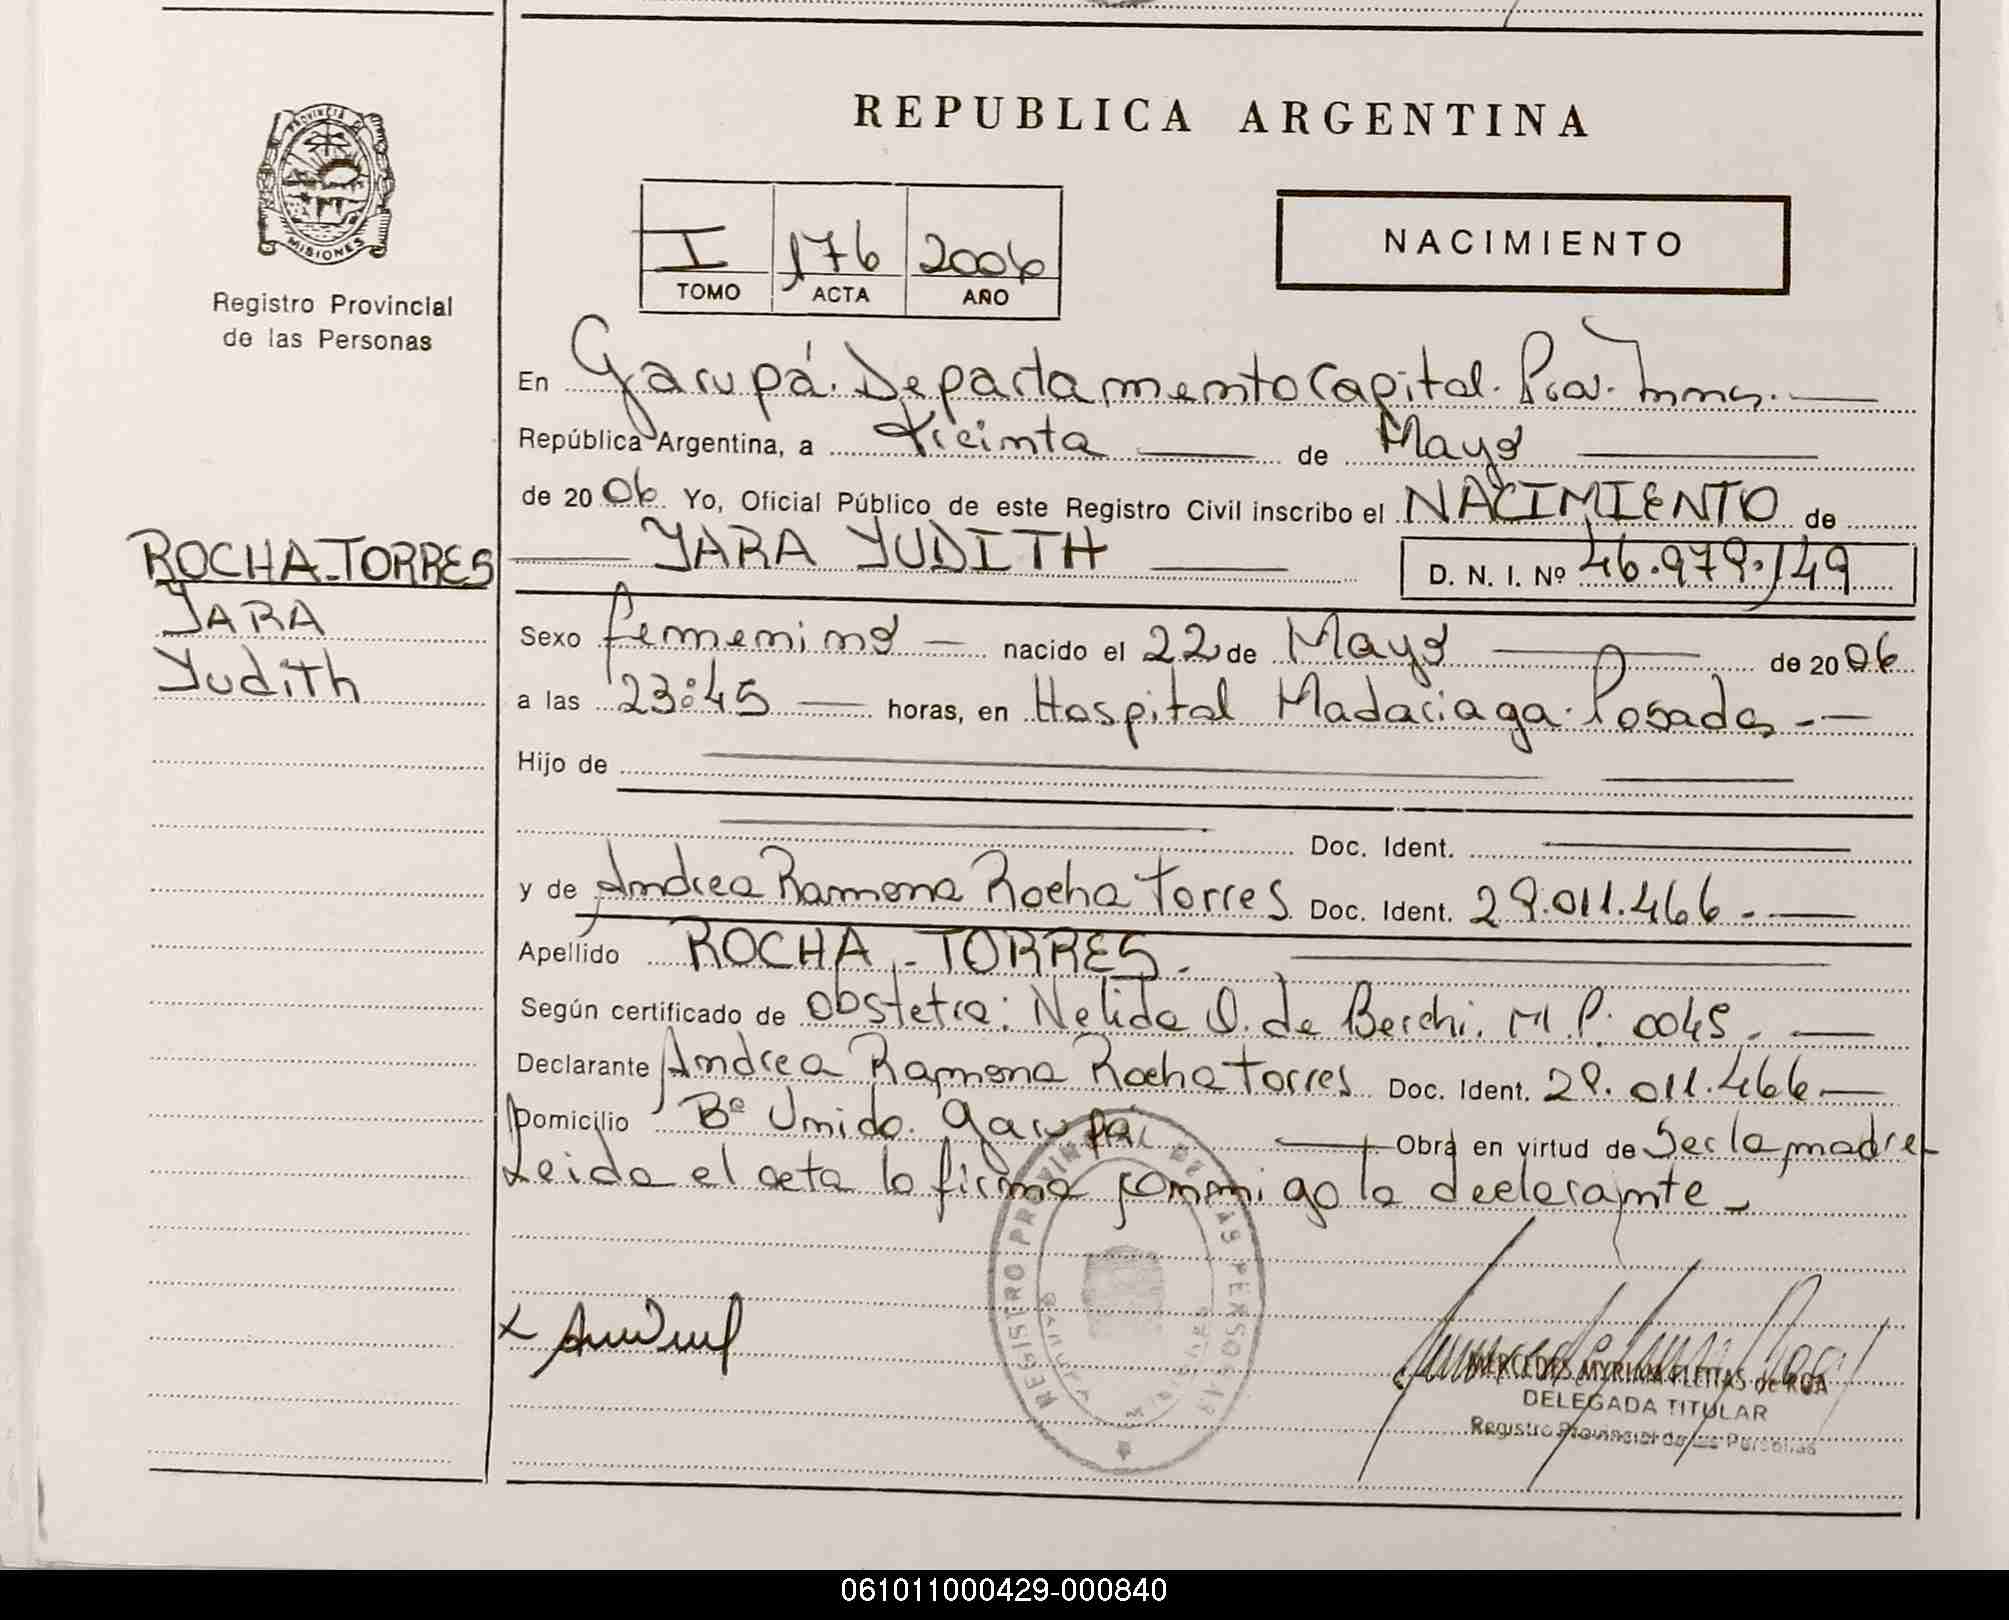 REPUBLICA ARGENTINA
PROVINCIA DE
MISIONES
Registro Provincial
de las Personas
I 176 2006
TOMO ACTA AÑO
NACIMIENTO
En Garupá. Departamento Capital. Prov. Mnes.
República Argentina, a treinta de Mayo
de 2006 Yo, Oficial Público de este Registro Civil inscribo el NACIMIENTO de
YARA YUDITH D. N. I. Nº 46.979.149
ROCHA-TORRES
YARA
Yudith
Sexo femenino nacido el 22 de Mayo de 2006
a las 23:45 horas, en Hospital Madariaga. Posadas
Hijo de
Doc. Ident.
y de Andrea Ramona Rocha Torres Doc. Ident. 29.011.466.
Apellido ROCHA - TORRES.
Según certificado de obstetra: Nelida O. de Berchi. M P. 0045.
Declarante Andrea Ramona Rocha Torres Doc. Ident. 29.011.466
Domicilio Bº Unido. Garupá Obra en virtud de Ser la madre
Leida el acta la firma conmigo la declarante
REGISTRO PROVINCIAL DE LAS PERSONAS
GARUPA
MISIONES
MERCEDES MYRIAM FLEITAS de ROA
DELEGADA TITULAR
Registro Provincial de las Personas
061011000429-000840